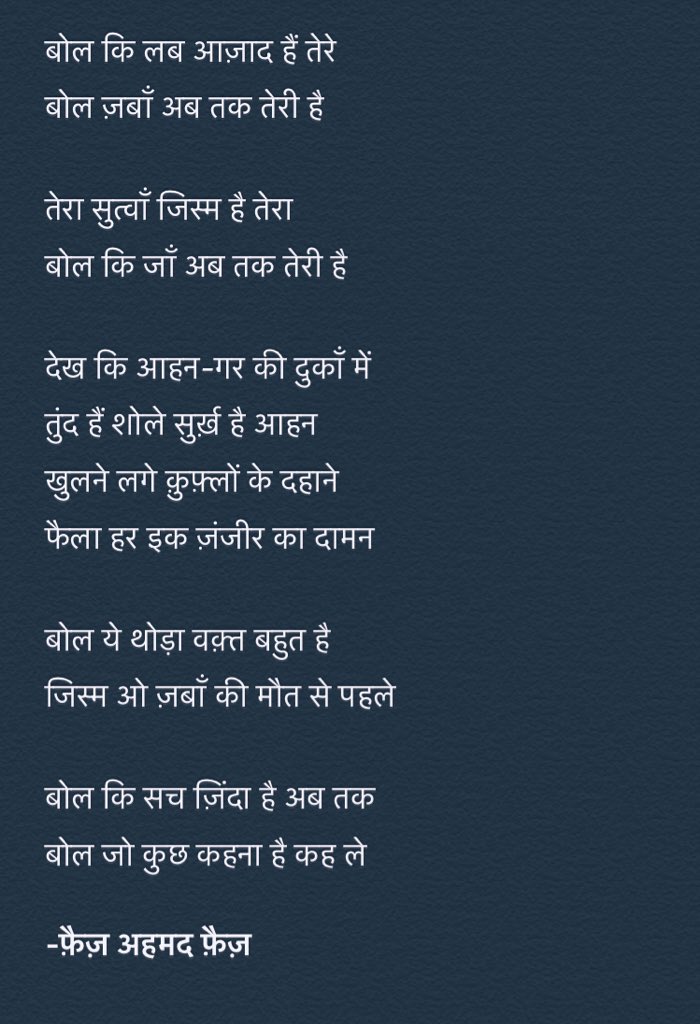 बोल कि लब आज़ाद हैं तेरे
बोल ज़बाँ अब तक तेरी है
तेरा सुत्वाँ जिस्म है तेरा
बोल कि जाँ अब तक तेरी है
देख कि आहन-गर की दुकाँ में
तुंद हैं शोले सुर्ख़ है आहन
खुलने लगे क़ुफ़्लों के दहाने
फैला हर इक ज़ंजीर का दामन
बोल ये थोड़ा वक़्त बहुत है
जिस्म ओ ज़बाँ की मौत से पहले
बोल कि सच ज़िंदा है अब तक
बोल जो कुछ कहना है कह ले
-फ़ैज़ अहमद फ़ैज़